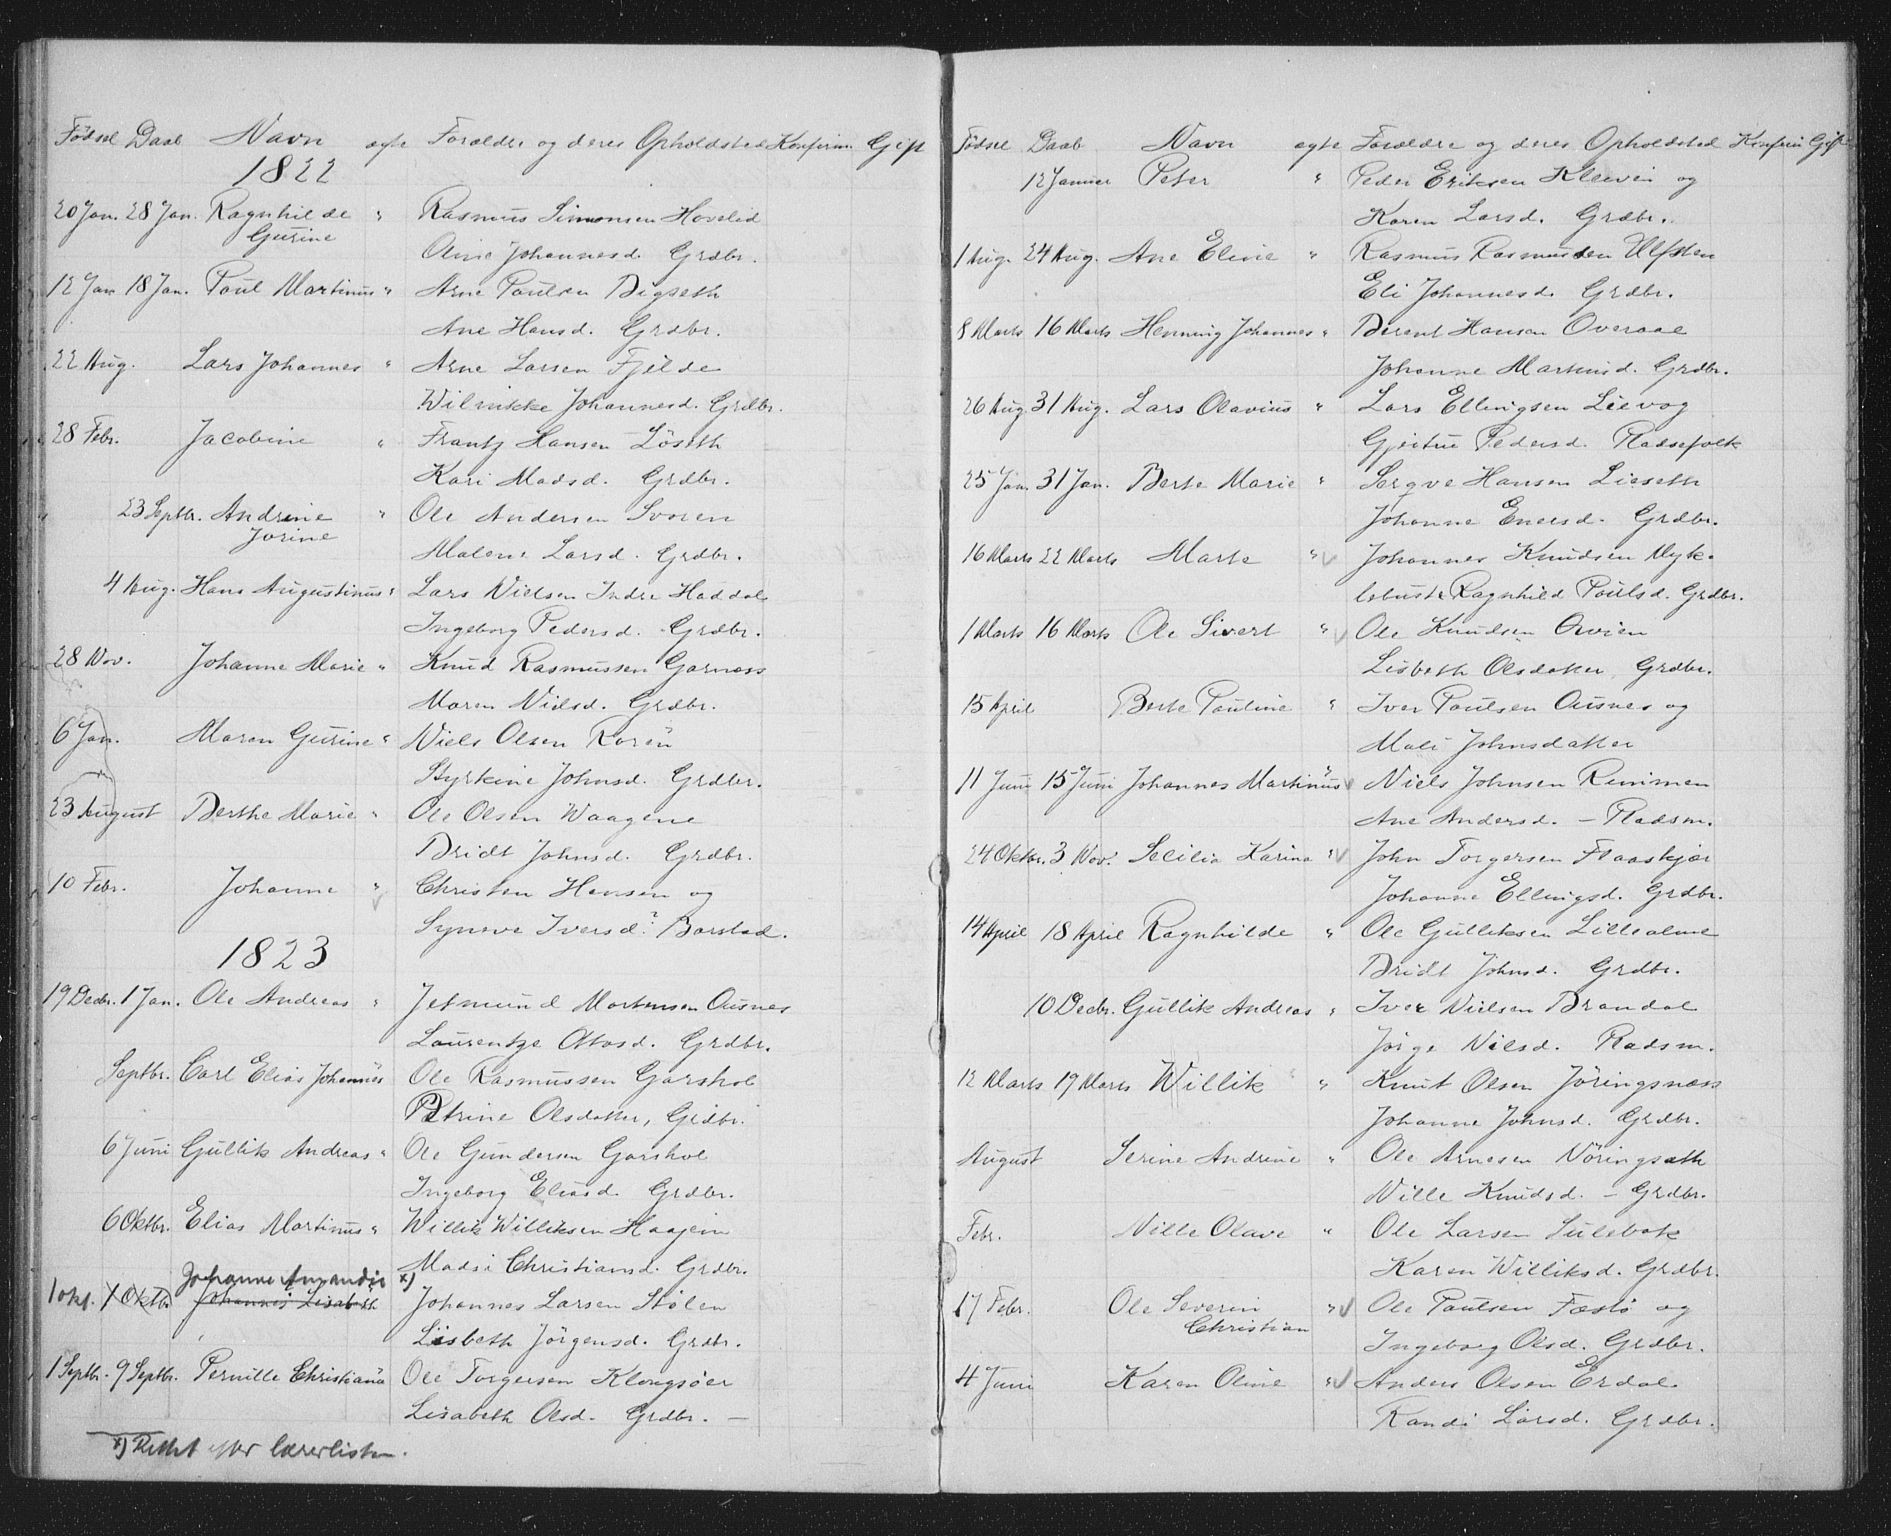 Fødsel Daab Navn egte Forældre og deres Opholdsted Konfirm Gift
1822
20 Jan. 28 Jan. Ragnhilde " Rasmus Simonsen Hovelid
Gurine
Oline Johannesd. Grdbr.
12 Jan 18 Jan. Poul Martinus " Arne Poulsen Digseth
Ane Hansd. Grdbr.
22 Aug. Lars Johannes " Arne Larsen Fjelde
Wilnikke Johannesd. Grdbr.
28 Febr. Jacobine " Frantz Hansen Löseth
Kari Madsd. Grdbr.
23 Septbr. Andrine " Ole Andersen Svoren
Jorine
Malene Larsd. Grdbr.
4 Aug. Hans Augustinus " Lars Nielsen Indre Haddal
Ingeborg Pedersd. Grdbr.
28 Nov. Johanne Marie " Knud Rasmussen Garnæss
Maren Nielsd. Grdbr.
6 Jan. Maren Gurine " Niels Olsen Rarön
Styrkine Johnsd. Grdbr.
23 August Berthe Marie " Ole Olsen Waagene
Bridt Johnsd. Grdbr.
10 Febr. Johanne " Christen Hansen og
Synove Iversd? Barstad.
1823
19 Decbr. 1 Jan. Ole Andreas " Jetmund Mortensen Ousnes
Laurentze Ottosd. Grdbr.
Septbr. Carl Elias Johannes Ole Rasmussen Garshol
Petrine Olsdatter, Grdbr.
6 Juni Gullik Andreas " Ole Gundersen Garshol
Ingeborg Eliasd. Grdbr.
6 Oktbr. Elias Martinus " Willik Williksen Haajem
Madsi Christiansd. Grdbr.
Johanne Amandie x)
1 okt. 7 Oktbr. Johannes Lisabeth Johannes Larsen Stølen
Lisbeth Jörgensd. Grdbr.
1 Septbr. 9 Septbr. Pernille Christiana Ole Torgersen Klongsöer
Lisabeth Olsd. Grdbr. —
x) Rettet efter lærerlisten.
Fødsel Daab Navn egte Forældre og deres Opholdsted Konfirm Gift
12 Januar Peter " Peder Eriksen Kleeven og
Karen Larsd. Grdbr.
1 Aug. 24 Aug. Ane Eline " Rasmus Rasmussen Ulfsten
Eli Johannesd. Grdbr.
8 Marts 16 Marts Henning Johannes " Berent Hansen Overaae
Johanne Martinsd. Grdbr.
26 Aug. 31 Aug. Lars Olavius " Lars Ellingsen Lievog
Gjertrue Pedersd. Pladsefolk
25 Jan. 31 Jan. Berte Marie " Serqve Hansen Lieseth
Johanne Enersd. Grdbr.
16 Marts 22 Marts Marte " Johannes Knudsen Myk-
lebust Ragnhild Poulsd. Grdbr.
1 Marts 16 Marts Ole Sivert " Ole Knudsen Orvien
Lisbeth Olsdatter, Grdbr.
15 April Berte Pauline " Iver Paulsen Ousnes og
Mali Johnsdatter
11 Juni 15 Juni Johannes Martinus " Niels Johnsen Remmen
Ane Andersd. — Pladsm.
24 Oktbr. 3 Nov. Secilia Karina " John Torgersen Flaaskjær
Johanne Ellingsd. Grdbr.
14 April 18 April Ragnhilde " Ole Gulliksen Lillealme
Bridt Johnsd. Grdbr.
10 Decbr. Gullik Andreas " Iver Nielsen Brandal
Jörge Nilsd. Pladsm.
12 Marts 19 Marts Willik " Knut Olsen Jöringsnæss
Johanne Johnsd. Grdbr.
August Serine Andrine " Ole Arnesen Nöringseth
Nille Knudsd. — Grdbr.
Febr. Nille Olave " Ole Larsen Sulebak
Karen Williksd. Grdbr.
17 Febr. Ole Severin " Ole Paulsen Festö og
Christian
Ingeborg Olsd. Grdbr.
4 Juni Karen Oline " Anders Olsen Erdal
Randi Larsd. Grdbr.